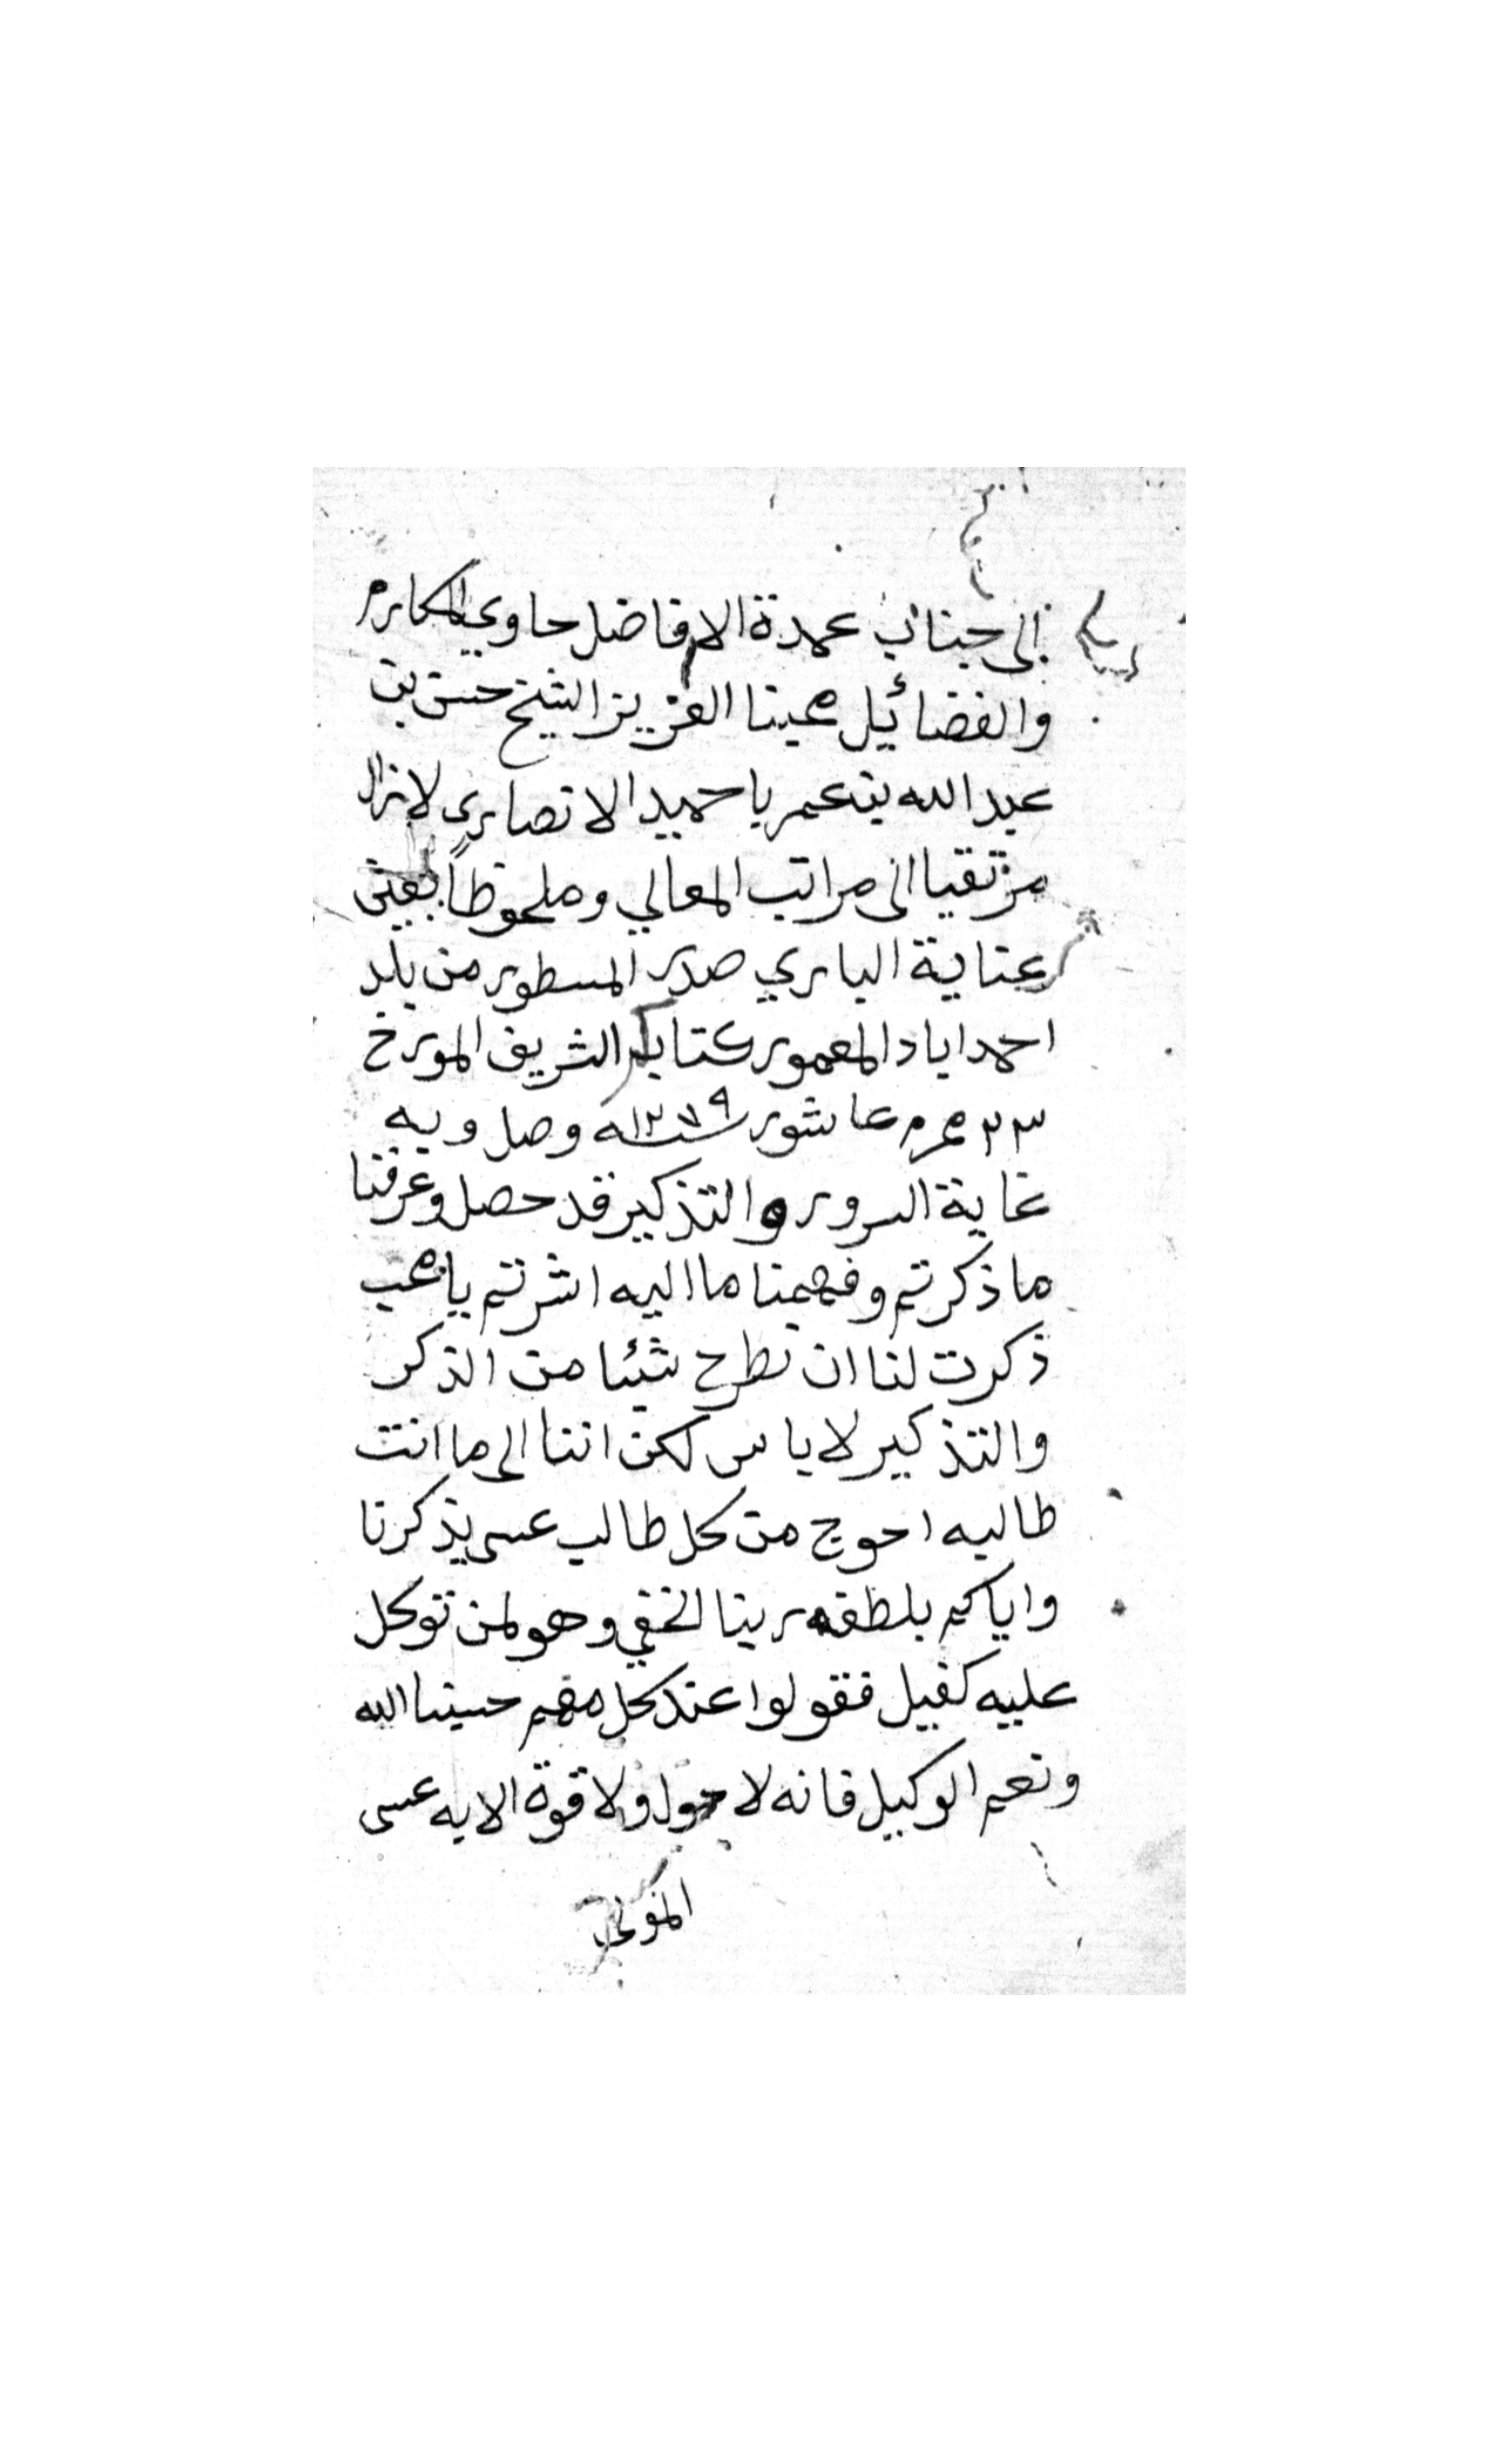 إلى جناب عمدة الافاضل حاوي المكارم
والفضائيل محبنا العزيز الشيخ حسن بن
عبدالله بنعمر باحميد الانصاري لازال
مرتقيا الى مراتب المعالي وملحوظاً بعين
عناية الباري صدر المسطور من بلد
احمداباد المعمور كتابكم الشريف المورخ
٢٣ محرم عاشور سنة ١٢٧٩ وصل وبه
غاية السرور والتذكير قد حصل وعرفنا
ما ذكرتم وفهمنا ما اليه اشرتم يا محب
ذكرت لنا ان نطرح شئيا من الذكر
والتذكير لا باس لكن اننا الى ما انت
طالبه احوج من كل طالب عسى يذكرنا
واياكم بلطفه ربنا الخفي وهو لمن توكل
عليه كفيل فقولوا عند كل مهم حسبنا الله
ونعم الوكيل فانه لا حول ولا قوة الا به عسى
المولى